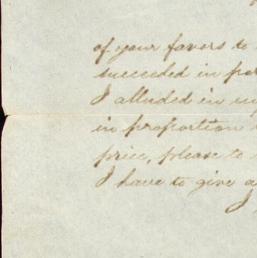 of your favors to
succeeded in
I alluded in
in proportion
price, please to
I have to give a
I